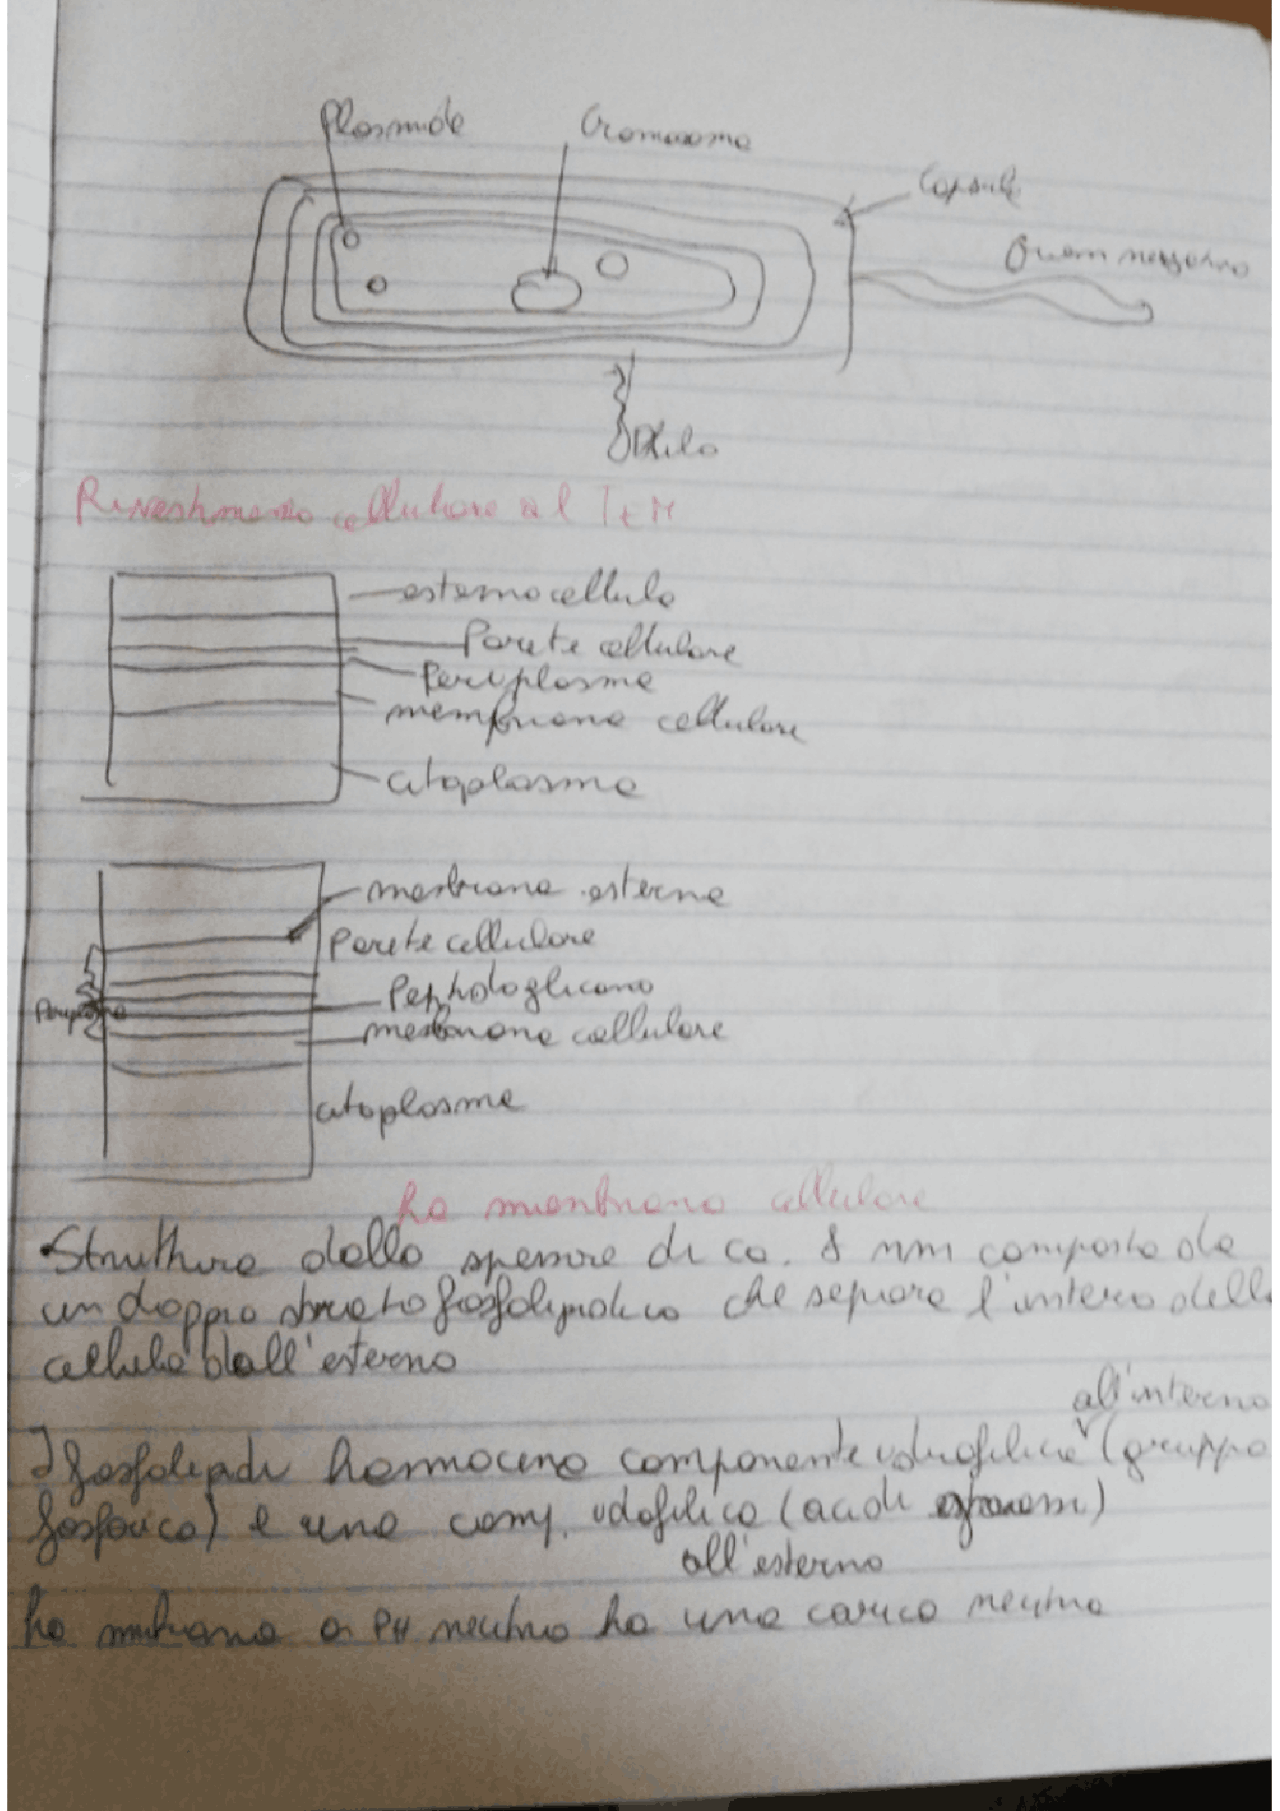 Plasmide
Cromosoma
Capsula
Pilo
Rivestimento cellulare al TEM
esterno cellula
Parete cellulare
Periplasma
membrana cellulare
citoplasma
membrana esterna
Parete cellulare
Peptidoglicano
membrana cellulare
citoplasma
La membrana cellulare
• Struttura dello spessore di ca. 8 nm composta da
un doppio strato fosfolipidico che separa l'interno della
cellula dall'esterno
all'interno
I fosfolipidi hanno una componente idrofilica (gruppo
fosforico) e una comp. idofilica (acidi
all'esterno
La membrana a PH neutro ha una carica